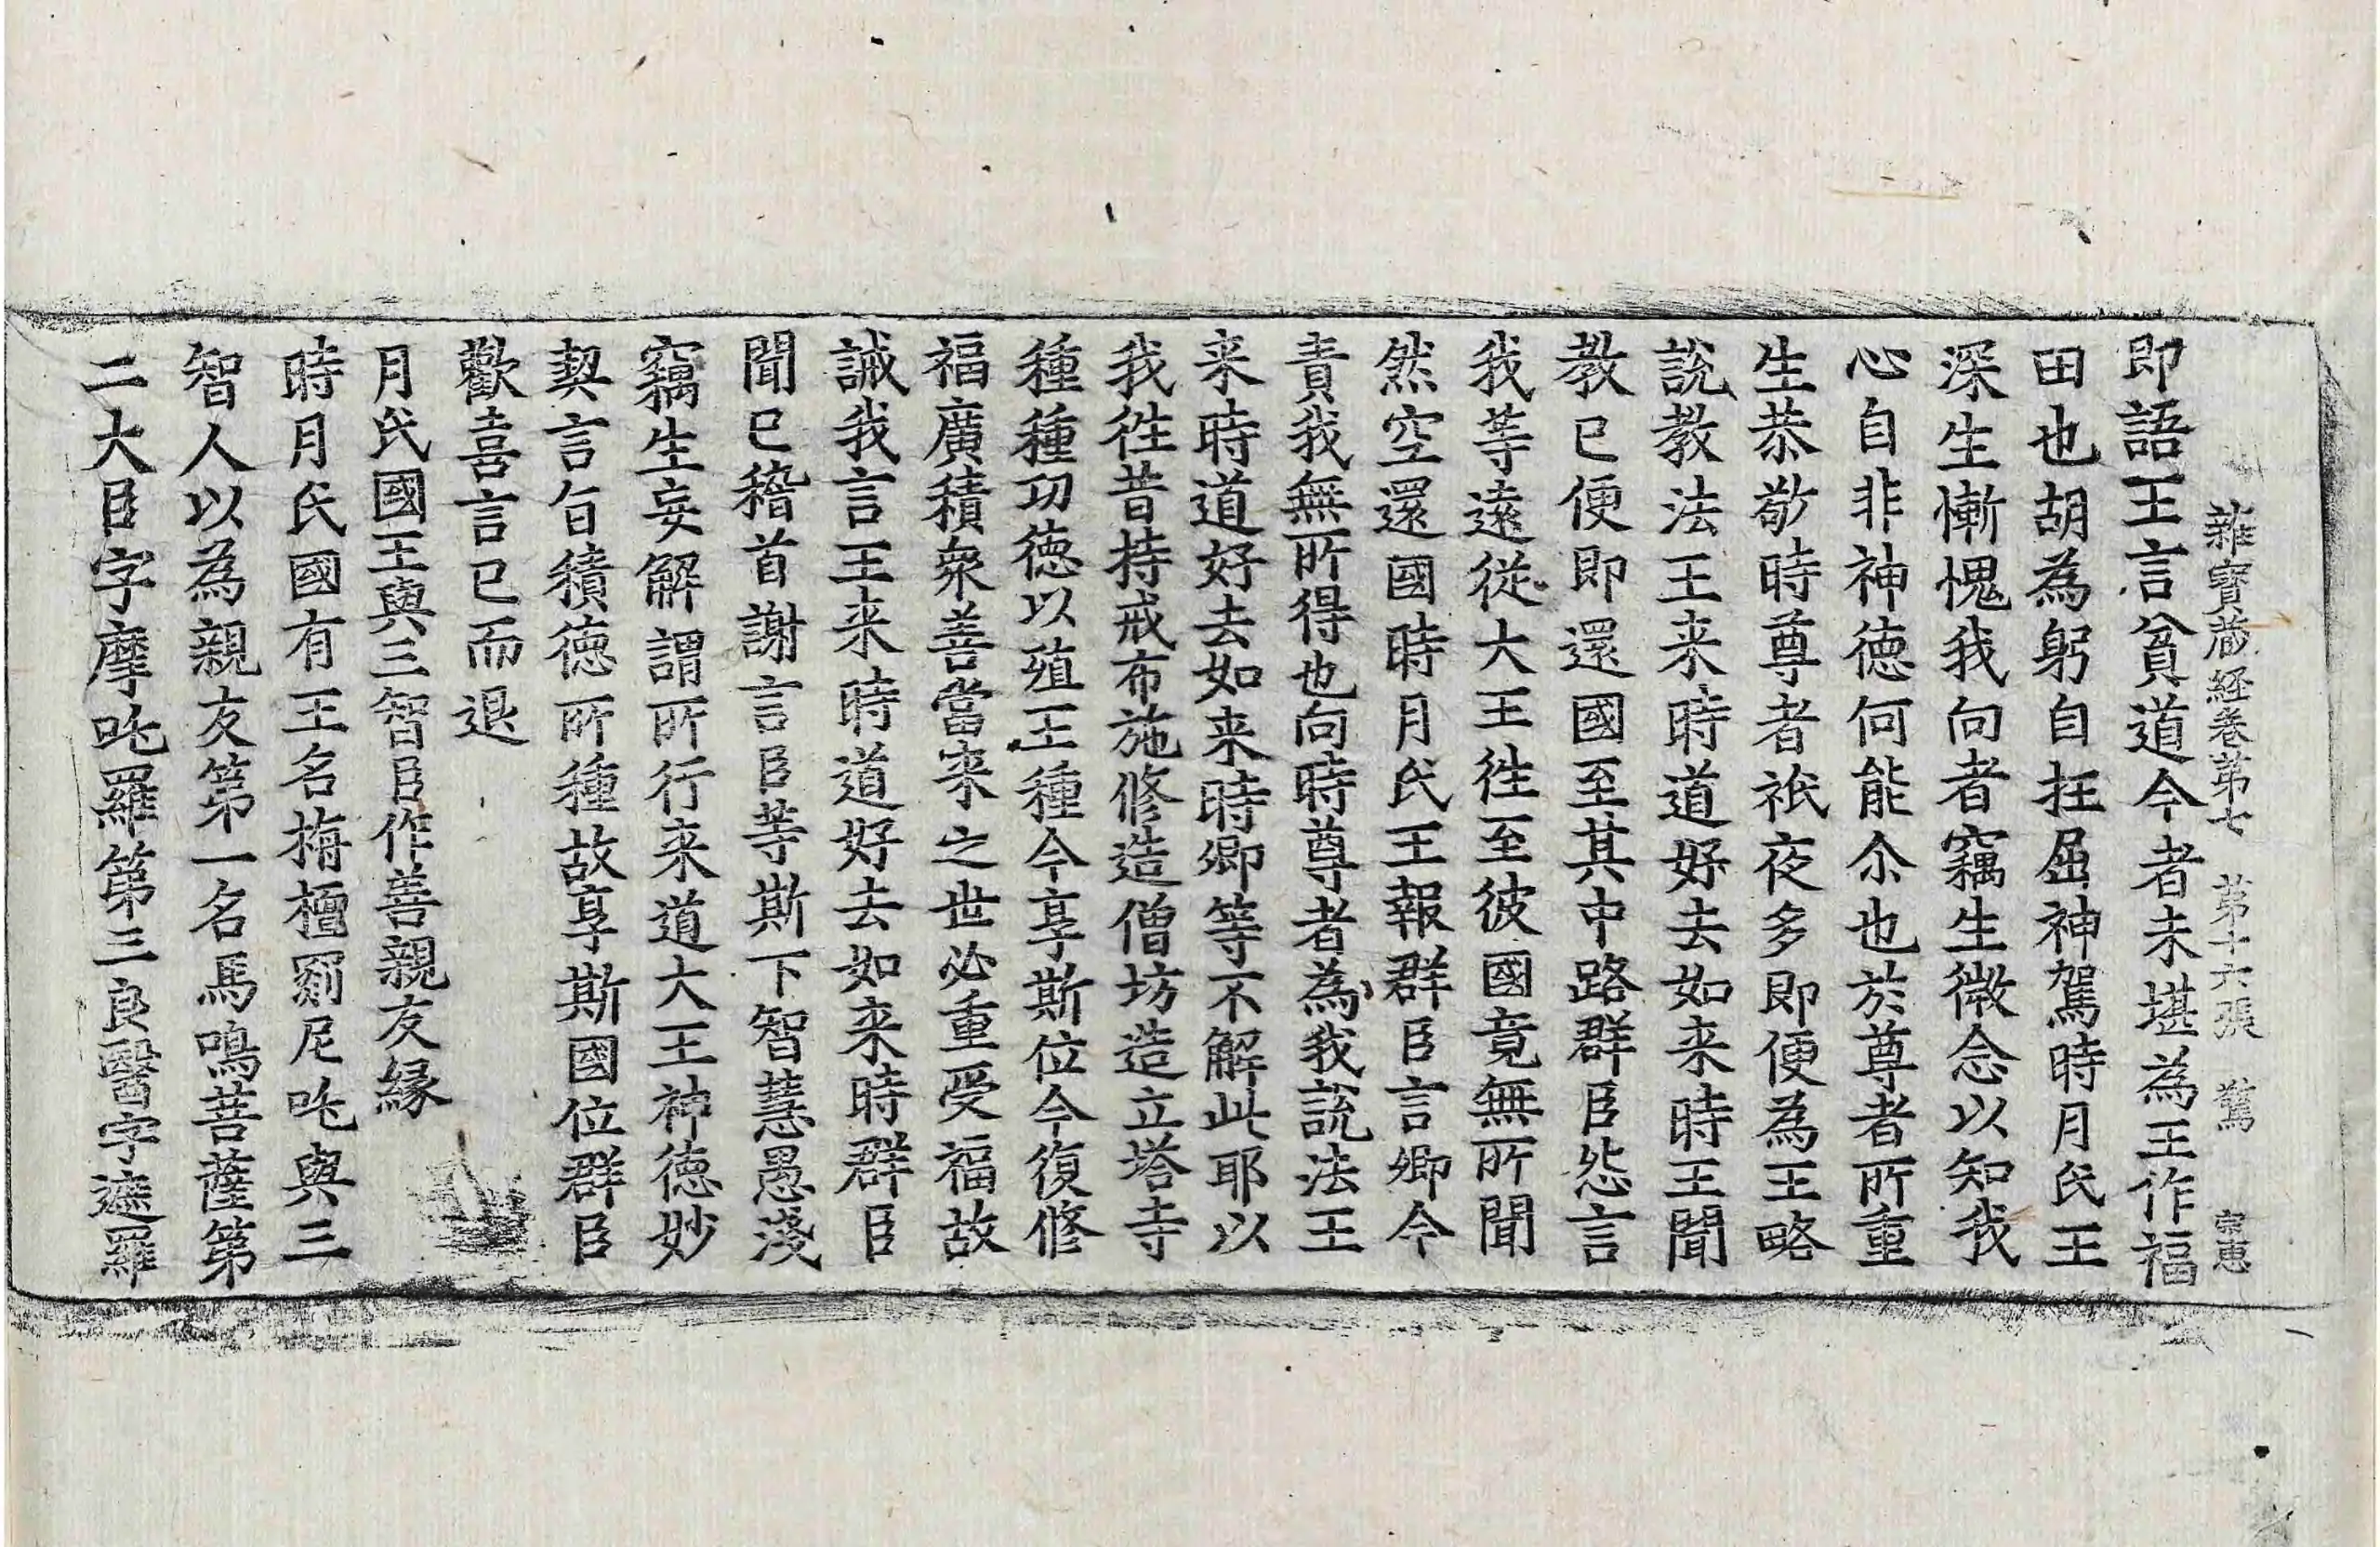 雜寶蔵経卷第七　第十六張　驚　宗惠
即語王言貧道今者未堪為王作福
田也胡為躬自抂屈神駕時月氏王
深生慚愧我向者竊生微念以知我
心自非神德何能尒也於尊者所重
生恭敬時尊者祇夜多即便為王略
說教法王来時道好去如来時王聞
教已便即還國至其中路群臣怨言
我等遠從大王徃至彼國竟無所聞
然空還國時月氏王報群臣言卿今
責我無所得也向時尊者為我說法王
来時道好去如来時卿等不解此耶以
我徃昔持戒布施修造僧坊造立塔寺
種種功德以殖王種今享斯位今復修
福廣積衆善當来之世必重受福故
誡我言王来時道好去如来時群臣
聞已稽首謝言臣等斯下智慧愚淺
竊生妄解謂所行来道大王神德妙
契言旨積德所種故享斯國位群臣
歡喜言已而退
月氏國王與三智臣作善親友緣
時月氏國有王名栴檀罽尼吒與三
智人以為親友第一名馬鳴菩薩第
二大臣字摩吒羅第三良醫字遮羅